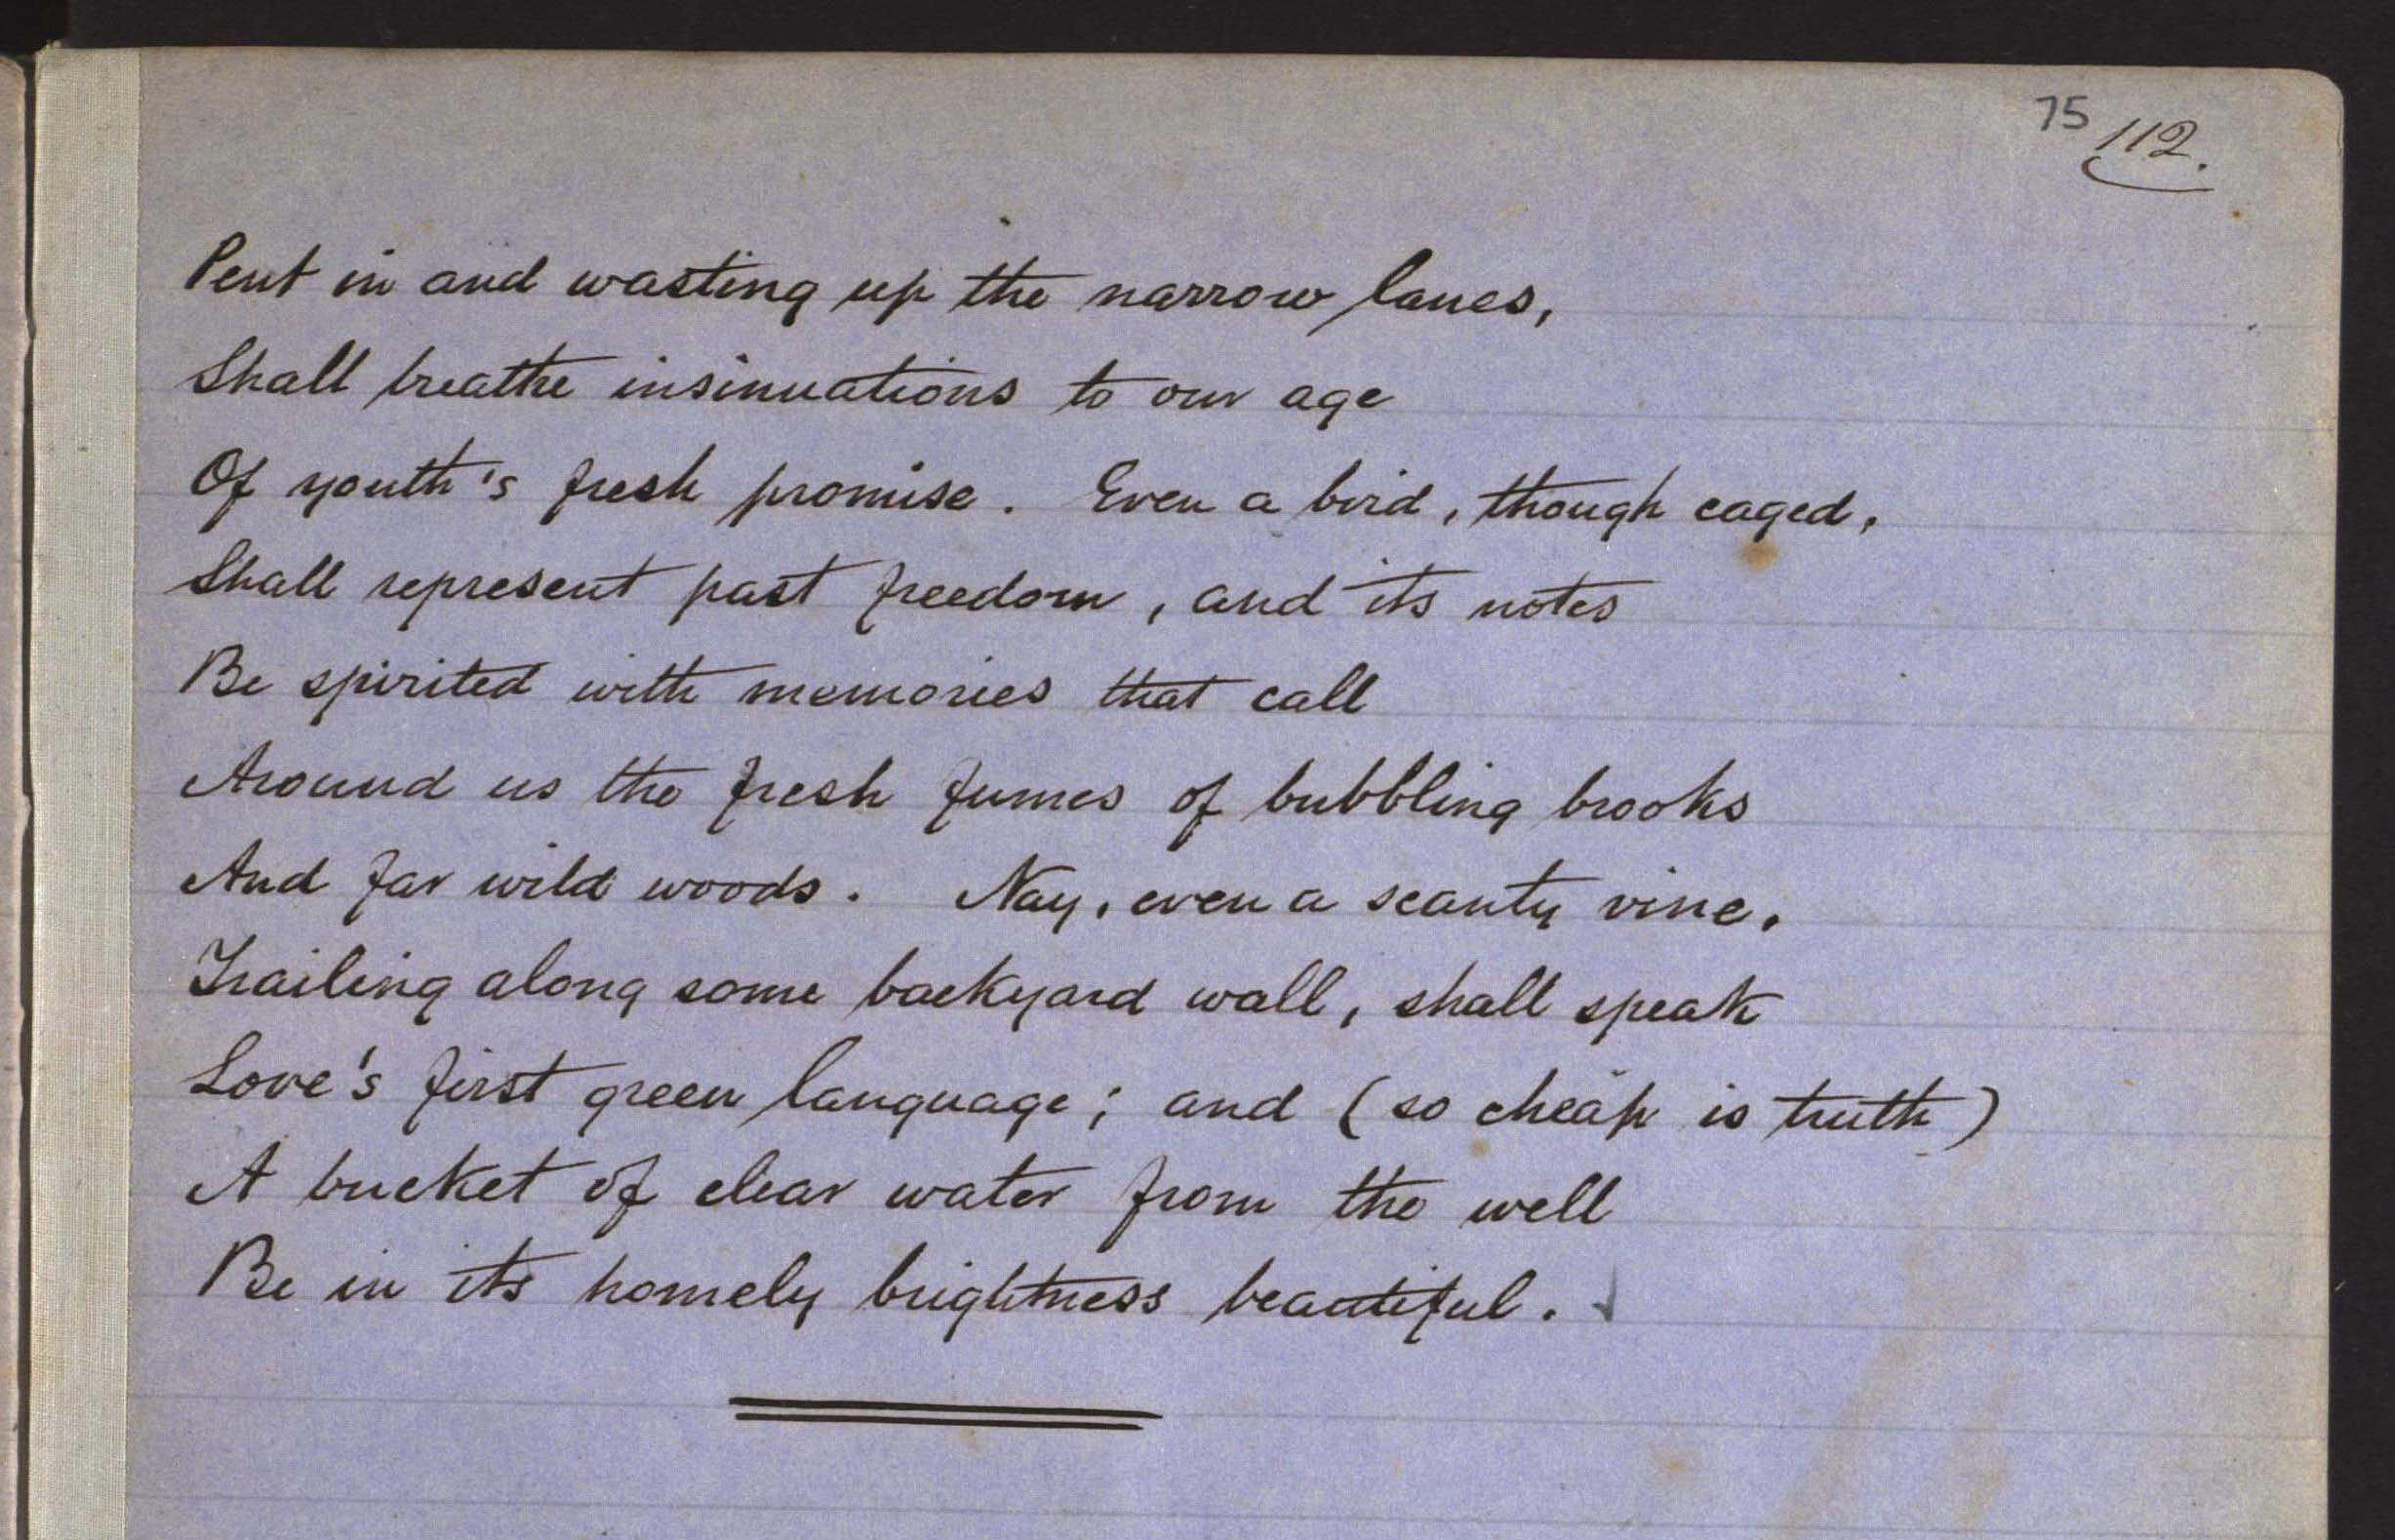 75
112.
Pent in and wasting up the narrow lanes,
Shall breathe insinuations to our age
Of youth's fresh promise. Even a bird, though caged,
Shall represent past freedom, and its notes
Be spirited with memories that call
Around us the fresh fumes of bubbling brooks
And far wild woods. Nay, even a scanty vine,
Trailing along some backyard wall, shall speak
Love's first green language; and (so cheap is truth)
A bucket of clear water from the well
Be in its homely brightness beautiful.